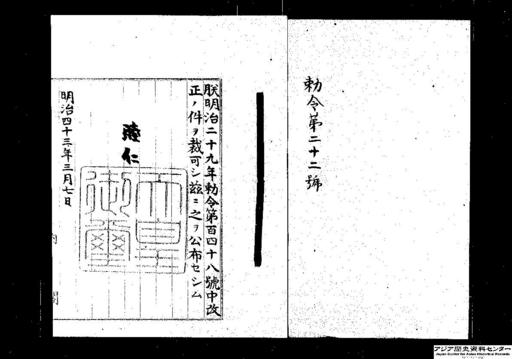 勅令第二十二號
朕明治二十九年勅令第百四十八號中改
正ノ件ヲ裁可シ茲ニ之ヲ公布セシム
睦仁
天皇
御璽
明治四十三年三月七日
内閣
アジア歴史資料センター
Japan Center for Asian Historical Records